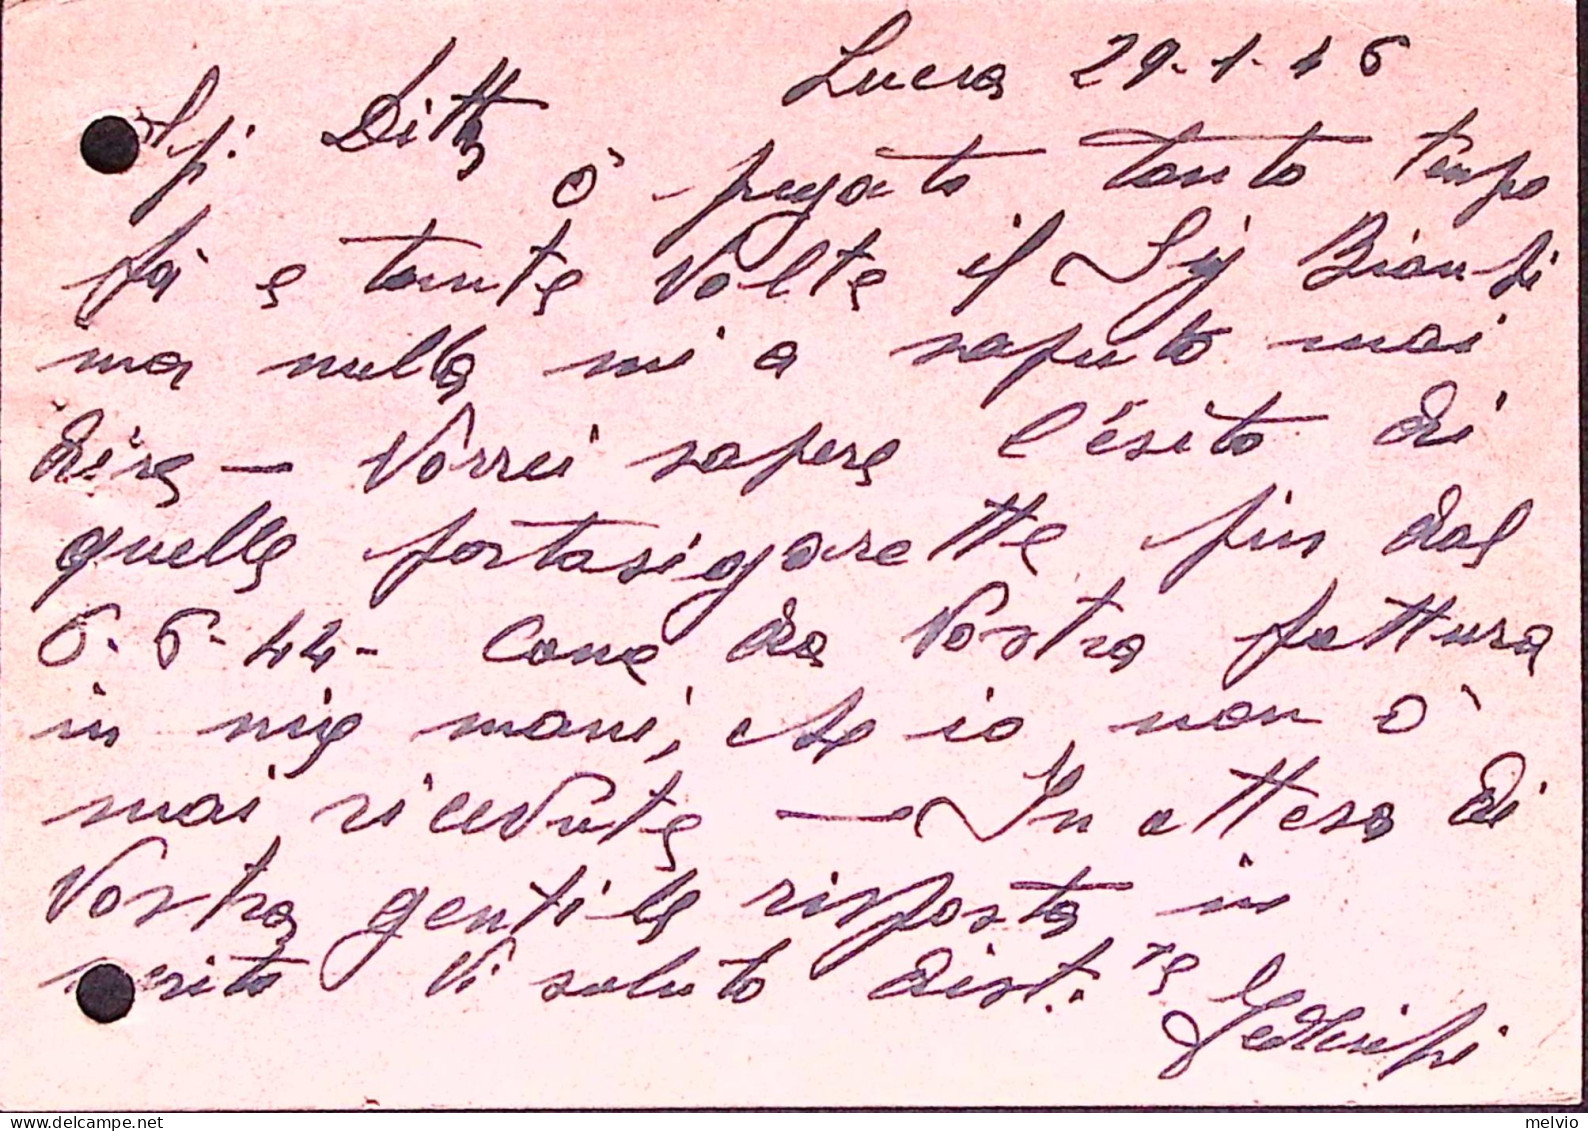 Lucca 29.1.46
Sp. Ditta
ò pregato tanto tempo
fà e tante volte il Sig Bianchi
ma nulla mi a saputo mai
dire - Vorrei sapere l'ésito di
quelle portasigarette fin dal
6.6.44 - Come da Vostra fattura
in mie mani, che io, non ò
mai ricevute - In attesa di
Vostra gentile risposta in
merito Vi saluto dist.te
melvio